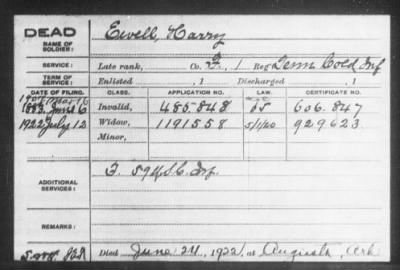 DEAD Ewell, Harry
NAME OF SOLDIER:
SERVICE: Late rank, Co. F, 1 Reg Tenn Cold Inf
TERM OF SERVICE: Enlisted , 1 Discharged , 1
DATE OF FILING. CLASS. APPLICATION NO. LAW. CERTIFICATE NO.
June 6 Invalid, 485.848 606.847
1922 July 12 Widow, 1191558 5/1/20 929623
Minor,
ADDITIONAL SERVICES: F. 59 U.S.C. Inf.
REMARKS:
Died June 24, 1922, at Augusta, Ark